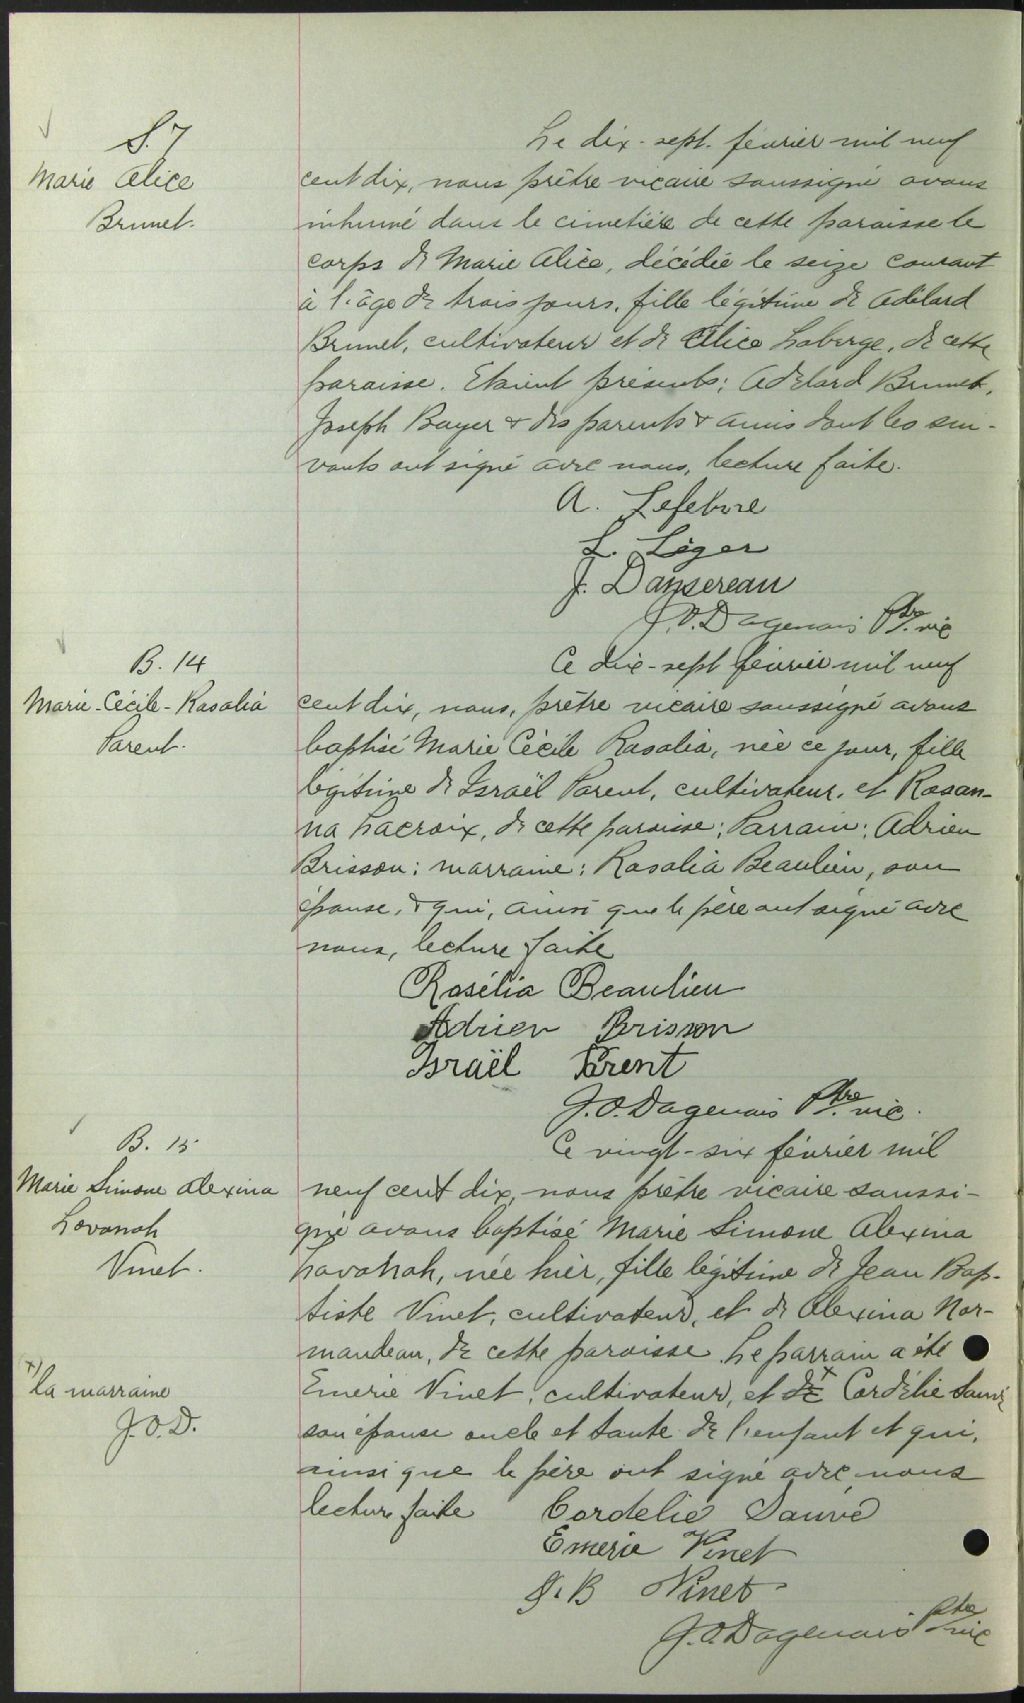 S. 7
Marie Alice
Brunet.
Le dix-sept février mil neuf
cent dix, nous prêtre vicaire soussigné avons
inhumé dans le cimetière de cette paroisse le
corps de Marie Alice, décédée le seize courant
à l'âge de trois jours, fille légitime de Adélard
Brunet, cultivateur et de Alice Laberge, de cette
paroisse. Etaient présents: Adélard Brunet,
Joseph Boyer & des parents & amis dont les sui-
vants ont signé avec nous, lecture faite.
A. Lefebvre
L. Léger
J. Dansereau
J.O. Dagenais Ptre. vic
B. 14
Marie-Cécile-Rosalia
Parent.
Ce dix-sept février mil neuf
cent dix, nous, prêtre vicaire soussigné avons
baptisé Marie Cécile Rosalia, née ce jour, fille
légitime de Israël Parent, cultivateur, et Rosan-
na Lacroix, de cette paroisse; Parrain: Adrien
Brisson; marraine: Rosalia Beaulieu, son
épouse, & qui, ainsi que le père ont signé avec
nous, lecture faite
Rosélia Beaulieu
Adrien Brisson
Israël Parent
J.O. Dagenais Ptre. vic.
B. 15
Marie Simone Alexina
Lovanah
Vinet.
Ce vingt-six février mil
neuf cent dix, nous prêtre vicaire soussi-
gné avons baptisé Marie Simone Alexina
Lavonah, née hier, fille légitime de Jean Bap-
tiste Vinet, cultivateur, et de Alexina Nor-
mandeau, de cette paroisse. Le parrain a été
Emerie Vinet, cultivateur, et de x Cordélie Sauvé
son épouse oncle et tante de l'enfant et qui,
ainsi que le père ont signé avec nous
lecture faite
(x) la marraine
J.O.D.
Cordelie Sauvé
Emerie Vinet
J. B Vinet
J.O. Dagenais Ptre vic